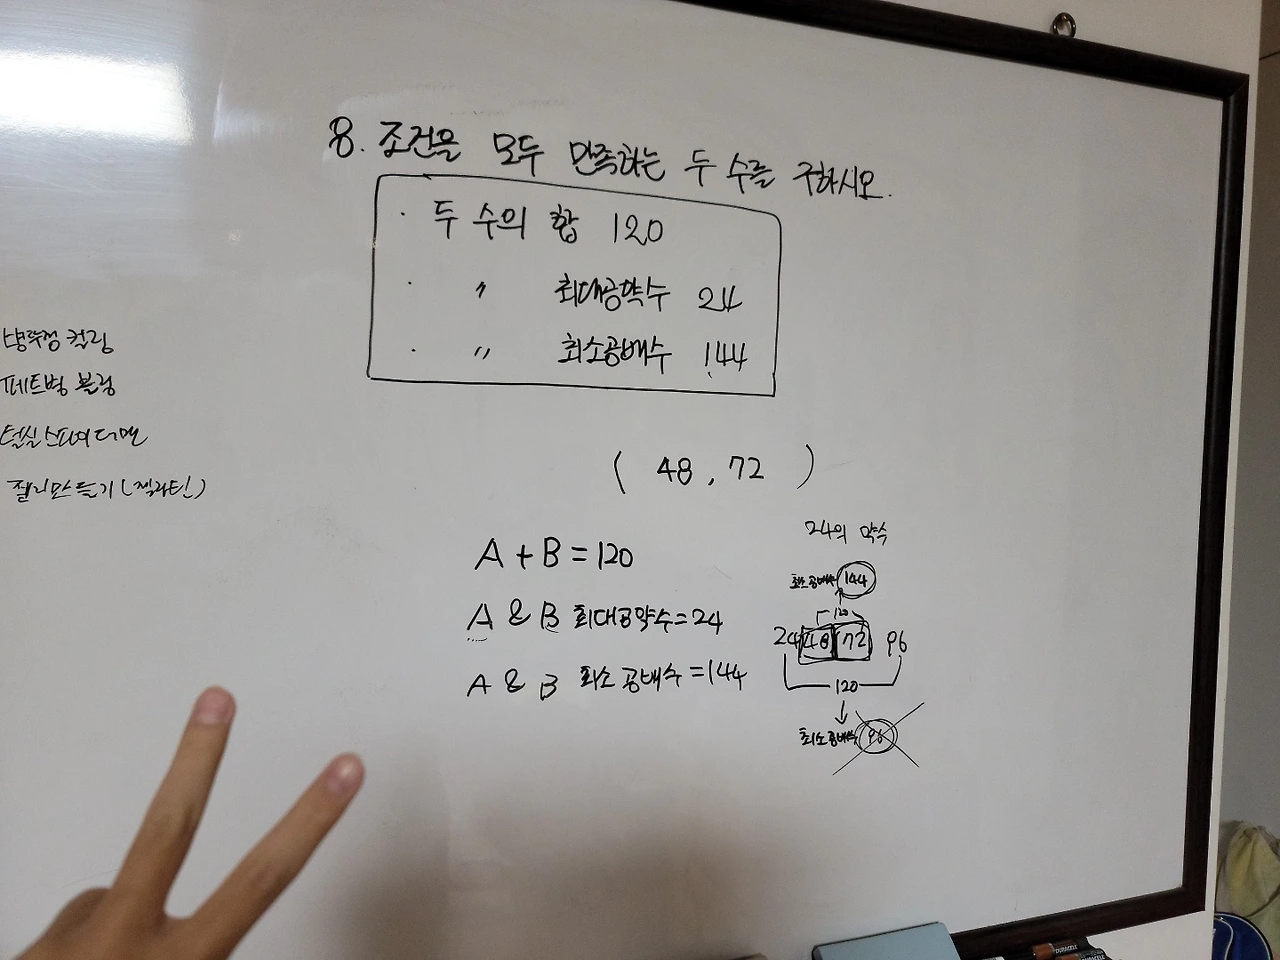 8. 조건을 모두 만족하는 두 수를 구하시오.
· 두 수의 합 120
· 〃 최대공약수 24
· 〃 최소공배수 144
병뚜껑 컬링
페트병 볼링
털실 스파이더맨
젤리만들기(젤라틴)
( 48 , 72 )
A + B = 120
A & B 최대공약수 = 24
A & B 최소공배수 = 144
24의 약수
최소공배수 144
120
24 48 72 96
120
최소공배수 96
DURACELL